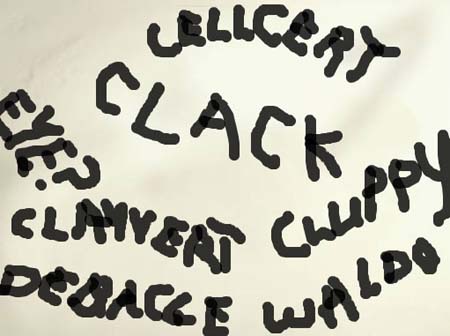 CELLCERT
CLACK
EYE?
CLAMVERT
CLUPPY
DEBACLE
WALDO